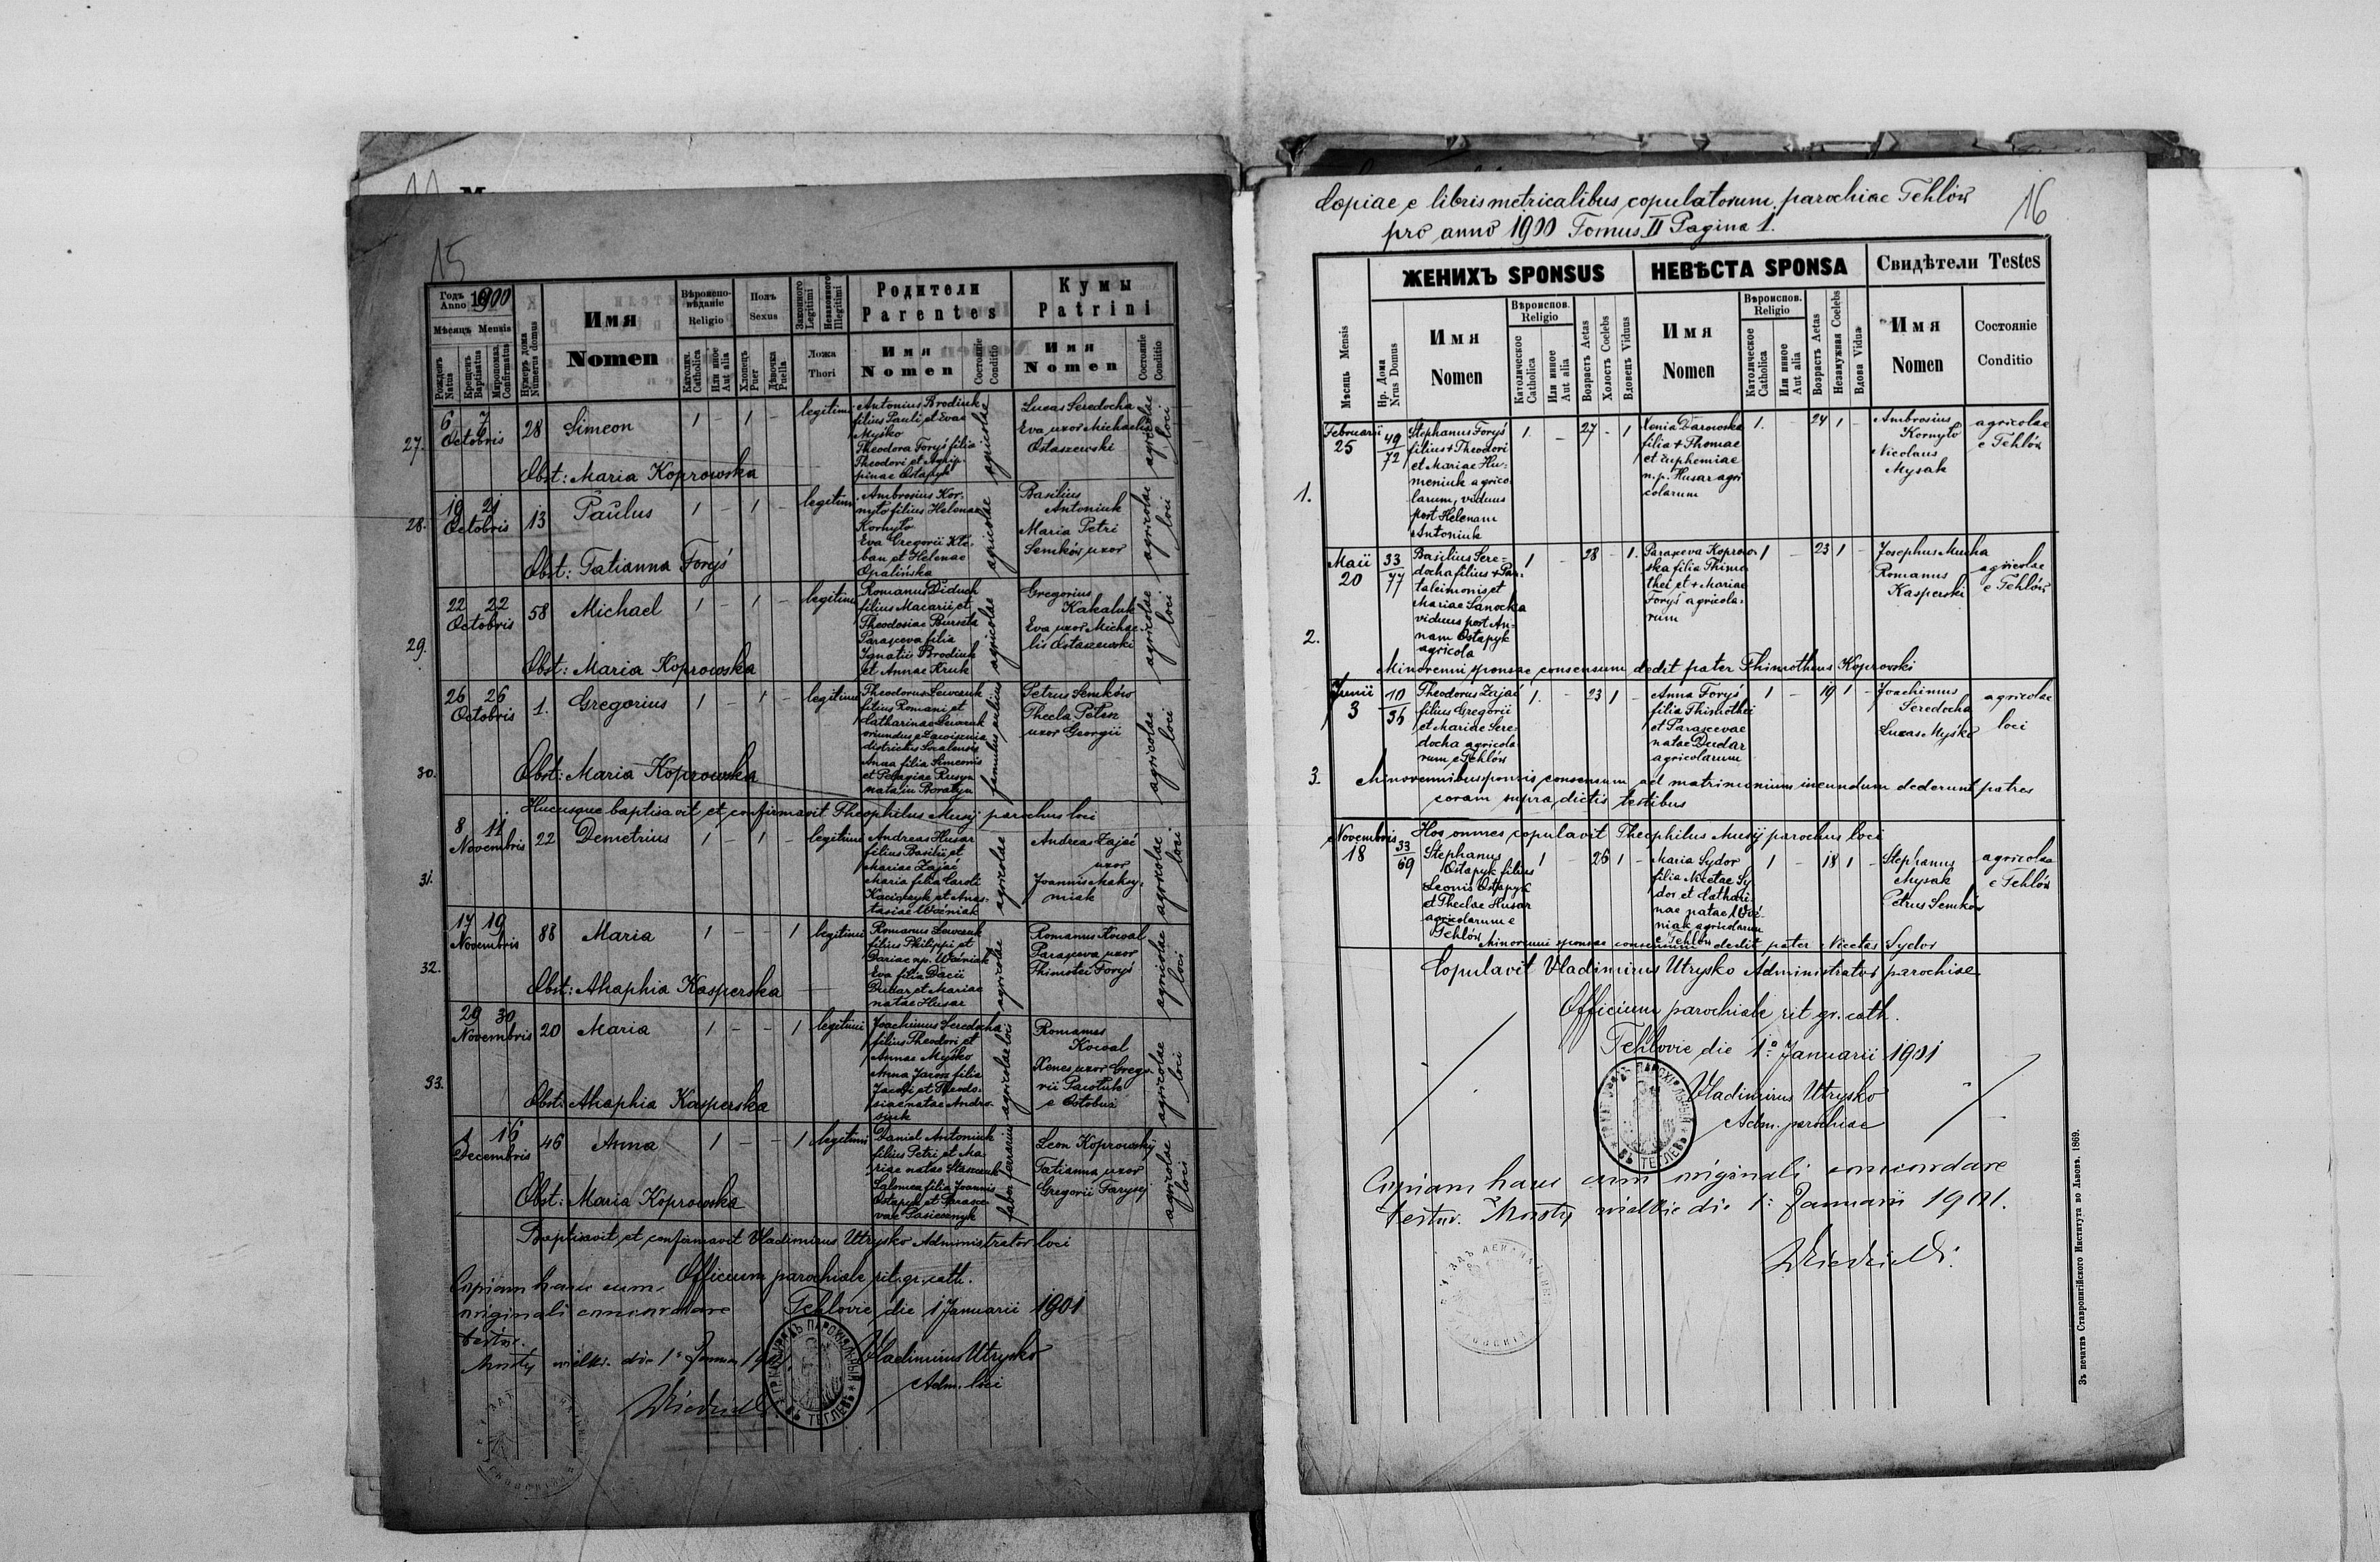 15
Годъ Anno 1900
Мѣсяць Mensis
Рожденъ Natus
Крещенъ Baptisatus
Миропомаз. Confirmatus
Нумеръ дома Numerus domus
Имя
Nomen
Вѣроиспо-
вѣданіе
Religio
Католич. Catholica
Или иное Aut alia
Полъ
Sexus
Хлопецъ Puer
Дѣвочка Puella
Законного Legitimi
Незаконного Illegitimi
Ложа
Thori
Родители
Parentes
Имя
Nomen
Состояніе Conditio
Кумы
Patrini
Имя
Nomen
Состояніе Conditio
27.
6 7
Octobris
28
Simeon
1 - 1 -
legitimi
Antonius Brodiuk
filius Pauli et Evae
Myśko
Theodora Foryś filia
Theodori et Agrip-
pinae Ostapyk
agricolae
Lucas Seredocha
Eva uxor Michaelis
Ostaszewski
agricolae loci
Obst: Maria Koprowska
28.
19 21
Octobris
13
Paulus
1 - 1 -
legitimi
Ambrosius Kor-
nyto filius Helenae
Kornyto
Eva Gregorii Kle-
ban et Helenae
Opalińska
agricolae
Basilius
Antoniuk
Maria Petri
Semków uxor
agricolae loci
Obst: Tatianna Foryś
29.
22 22
Octobris
58
Michael
1 - 1 -
legitimi
Romanus Diduch
filius Macarii et
Theodosiae Burszta
Parasceva filia
Ignatii Brodiuk
et Annae Kruk
agricolae
Gregorius
Kakaluk
Eva uxor Michae-
lis Ostaszewski
agricolae loci
Obst: Maria Koprowska
30.
26 26
Octobris
1.
Gregorius
1 - 1 -
legitimi
Theodorus Lewczuk
filius Romani et
Catharinae Lewczuk
oriundus e Zawisznia
districtus Socalensis
Anna filia Simeonis
et Pelagiae Rusyn
nata in Boratyn
famulus
Petrus Semków
Thecla Peten
uxor Georgii
agricolae loci
Obst: Maria Koprowska
Hucusque baptisavit et confirmavit Theophilus Musij parochus loci
31.
8 11
Novembris
22
Demetrius
1 - 1 -
legitimi
Andreas Husar
filius Basilii et
Mariae Zając
Maria filia Caroli
Kacięzyk et Anas-
tasiae Woźniak
agricolae
Andreas Zając
uxor
Joannis Maksy-
miak
agricolae loci
32.
17 19
Novembris
88
Maria
1 - - 1
legitimi
Romanus Lewczuk
filius Philippi et
Dariae n.p. Woźniak
Eva filia Dacii
Dudar et Mariae
natae Husar
agricolae
Romanus Kowal
Parasceva uxor
Thimotei Foryś
agricolae loci
Obst: Ahaphia Kasperska
33.
29 30
Novembris
20
Maria
1 - - 1
legitimi
Joachimus Seredocha
filius Theodori et
Annae Myśko
Anna Jarosz filia
Jacobi et Theodo-
siae natae Andro-
siuk
agricolae loci
Romanus
Kowal
Xenes uxor Grego-
rii Pawluk
e Ostobuż
agricolae loci
Obst: Ahaphia Kasperska
1 16
Decembris
46
Anna
1 - - 1
legitimi
Daniel Antoniuk
filius Petri et Ma-
riae natae Staszczuk
Salomea filia Joannis
Ostapyk et Parasce-
vae Pasiecznyk
faber ferrarius
Leon Koprowskij
Tatianna uxor
Gregorii Farysij
agricolae loci
Obst: Maria Koprowska
Baptisavit et confirmavit Vladimirus Utrysko Administrator loci
Officium parochiale rit. gr. cath.
Tehlovie die 1 Januarii 1901
Vladimirus Utrysko
Adm. loci
Copiam hanc cum
originali concordare
testor.
Mosty wielkie die 1º Januar 1901.
ВЪ ТЕГЛЕВѢ
16
Copiae e libris metricalibus copulatorum parochiae Tehlów
pro anno 1900 Tomus II Pagina 1.
Мѣсяць Mensis
Нр. Дома Nrus Domus
ЖЕНИХЪ SPONSUS
Имя
Nomen
Вѣроиспов.
Religio
Католическое Catholica
Или иное Aut alia
Возрастъ Aetas
Холостъ Coelebs
Вдовецъ Viduus
НЕВѢСТА SPONSA
Имя
Nomen
Вѣроиспов.
Religio
Католическое Catholica
Или иное Aut alia
Возрастъ Aetas
Незамужная Coelebs
Вдова Vidua
Свидѣтели Testes
Имя
Nomen
Состояніе
Conditio
1.
Februarii
25
49
72
Stephanus Foryś
filius + Theodori
et Mariae Hu-
meniuk agrico-
larum, viduus
post Helenam
Antoniuk
1. - 27 - 1
Xenia Darowska
filia + Thomae
et Euphemiae
n.p. Husar agri
colarum
1. - 24 1 -
Ambrosius
Kornyto
Nicolaus
Mysak
agricolae
e Tehlów
2.
Maii
20
33
77
Basilius Sere-
docha filius + Pan-
taleimonis et
Mariae Sanocka
viduus post An-
nam Ostapyk
agricola
1 - 28 - 1.
Parasceva Koprow-
ska filia Thimo
thei et + Mariae
Foryś agricola-
rum
1 - 23 1 -
Josephus Mucha
Romanus
Kasperski
agricolae
e Tehlów
Minorenni sponsae consensum dedit pater Thimotheus Koprowski
3.
Junii
3
10
36
Theodorus Zając
filius Gregorii
et Mariae Sere-
docha agricola
rum e Tehlów
1. - 23 1 -
Anna Foryś
filia Thimothei
et Parascevae
natae Dudar
agricolarum
1 - 19 1 -
Joachimus
Seredocha
Lucas Myśko
agricolae
loci
Minorennibus sponsis consensum ad matrimonium ineundum dederunt patres
coram supra dictis testibus
Hos omnes copulavit Theophilus Musij parochus loci
Novembris
18
33
69
Stephanus
Ostapyk filius
Leonis Ostapyk
et Theclae Husar
agricolarum e
Tehlów
1 - 26 1 -
Maria Sydor
filia Nicetae Sy
dor et Cathari-
nae natae Woź-
niak agricolarum
e Tehlów
1 - 18 1 -
Stephanus
Mysak
Petrus Semków
agricolae
e Tehlów
Minorenni sponsae consensum dedit pater Nicetas Sydor
Copulavit Vladimirus Utrysko Administrator parochiae
Officium parochiale rit. gr. cath.
Tehlovie die 1º Januarii 1901
Vladimirus Utrysko
Adm. parochiae
ВЪ ТЕГЛЕВѢ
Copiam hanc cum originali concordare
testor. Mosty wielkie die 1º Januarii 1901.
Зъ печатнѣ Ставропигійского Института во Львовѣ. 1869.